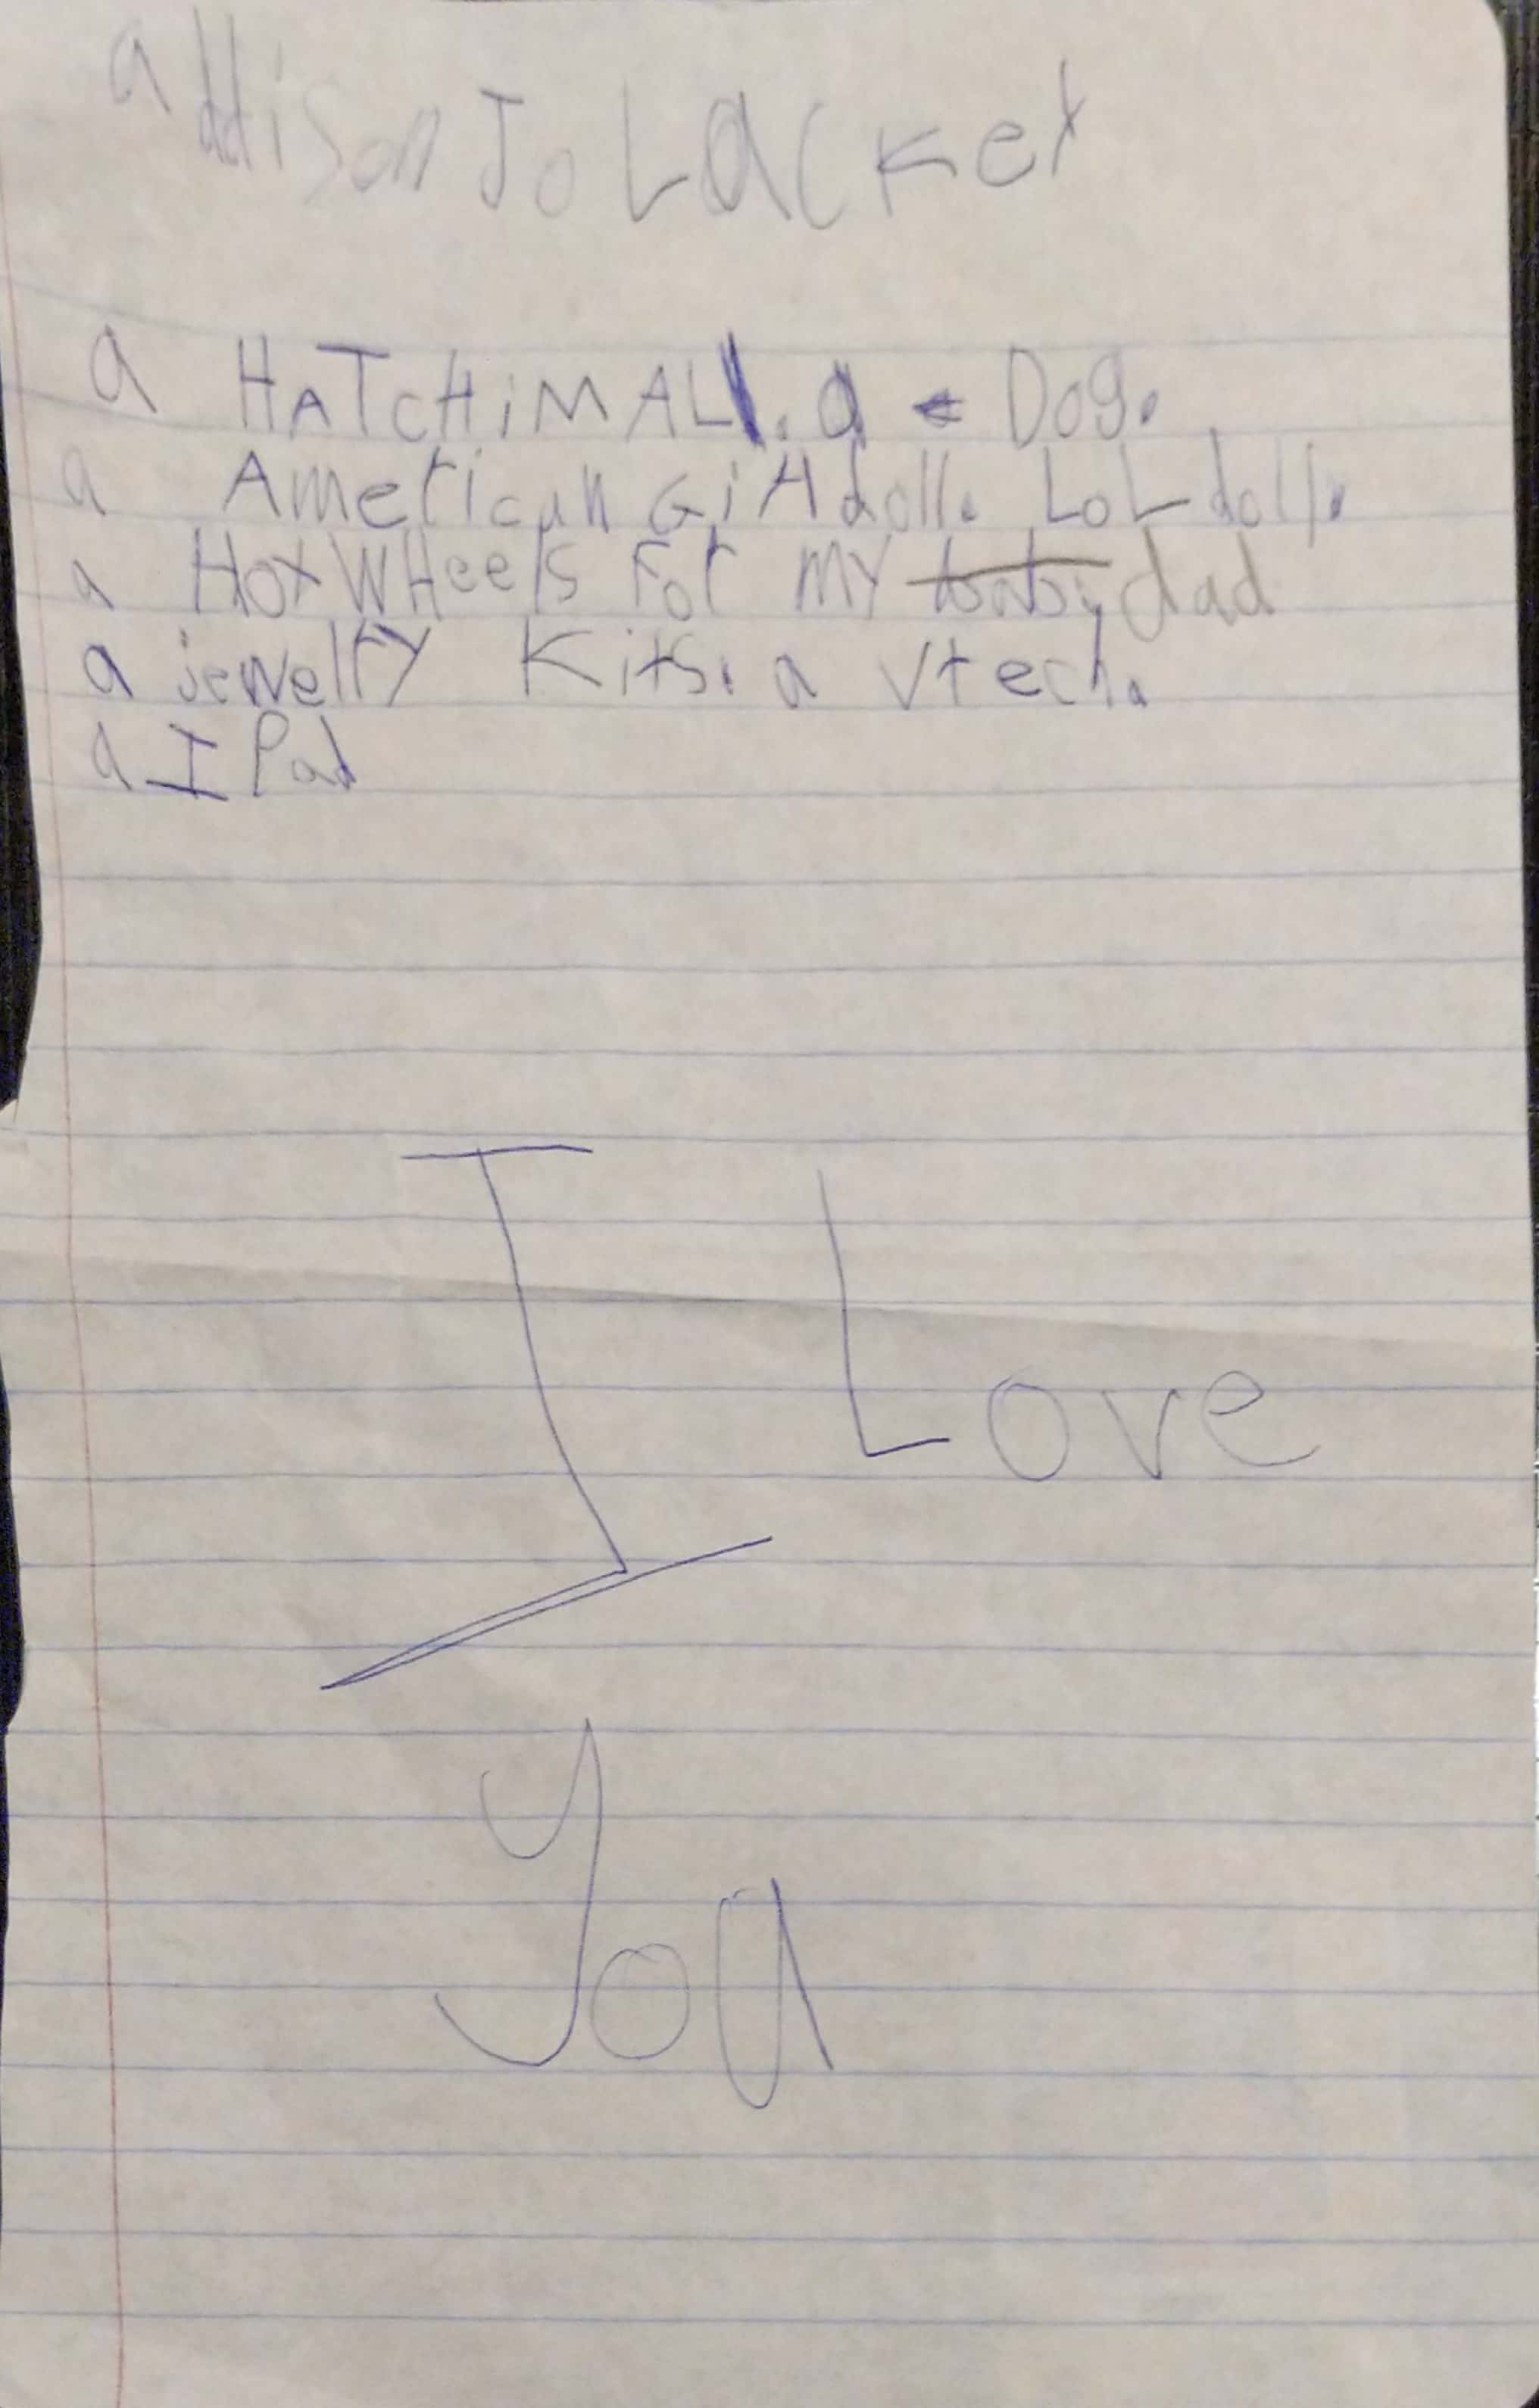 addison Jo Lacket
a HATCHiMAL. a Dog.
a American Girl doll. LoL doll.
a Hot WHeels For my baby dad
a jewelry Kits. a Vtech.
a I Pad
I Love
You